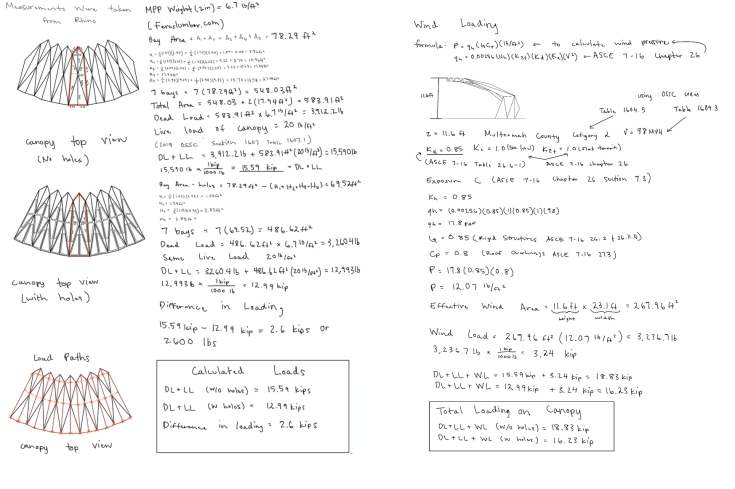 Measurements Were taken
from Rhino
MPP Weight (2in) = 6.7 lb/ft²
(Fereslumber.com)
Bay Area = A₁ + A₂ + A₃ + A₄ + A₅ = 78.29 ft²
7 bays = 7(78.29ft²) = 548.03ft²
Total Area = 548.03 + 2(17.94ft²) = 583.91ft²
Dead Load = 583.91ft² x 6.7 lb/ft² = 3,912.2lb
Live load of canopy = 20 lb/ft²
(2019 OSSC Section 1607 Table 1607.1)
DL + LL = 3,912.2lb + 583.91ft² (20lb/ft²) = 15,590lb
15,590 lb x 1kip/1000 lb = 15.59 kip = DL + LL
canopy top view
(No holes)
Bay Area - holes = 78.29ft² - (H₁+H₂+H₃+H₄) = 69.52ft²
7 bays = 7(69.52) = 486.62ft²
Dead Load = 486.62ft² x 6.7 lb/ft² = 3,260.4lb
Same Live Load 20lb/ft²
DL + LL = 3260.4lb + 486.62ft² (20lb/ft²) = 12,993lb
12,993lb x 1kip/1000 lb = 12.99 kip
canopy top view
(with holes)
Difference in Loading
15.59 kip - 12.99 kip = 2.6 kips or
2600 lbs
Load Paths
canopy top view
Calculated Loads
DL + LL (w/o holes) = 15.59 kips
DL + LL (w holes) = 12.99 kips
Difference in loading = 2.6 kips
Wind Loading
formula: P = qh(GCp)(lb/ft²) ← to calculate wind pressure
qh = 0.00256(Kh)(Kzt)(Kd)(Ke)(V²) ← ASCE 7-16 Chapter 26
11.6ft
using OSSC codes
Table 1604.5 Table 1609.3
z = 11.6 ft Multnomah County Category 2 V = 98 MPH
Kd = 0.85 Ke = 1.0 (sea level) Kzt = 1.0 (flat terrain)
(ASCE 7-16 Table 26.6-1) ASCE 7-16 chapter 26
Exposure C (ASCE 7-16 Chapter 26 Section 7.3)
Kh = 0.85
qh = (0.00256)(0.85)(1)(0.85)(1)(98)
qh = 17.8 psf
G = 0.85 (Rigid Structures ASCE 7-16 26.2 + 26.11.4)
Cp = 0.8 (Roof Overhangs ASCE 7-16 27.3)
P = 17.8(0.85)(0.8)
P = 12.07 lb/ft²
Effective Wind Area = 11.6 ft x 23.1 ft = 267.96 ft²
height width
Wind Load = 267.96 ft² (12.07 lb/ft²) = 3,236.7lb
3,236.7 lb x 1kip/1000lb = 3.24 kip
DL + LL + WL = 15.59 kip + 3.24 kip = 18.83 kip
DL + LL + WL = 12.99 kip + 3.24 kip = 16.23 kip
Total Loading on Canopy
DL + LL + WL (w/o holes) = 18.83 kip
DL + LL + WL (w holes) = 16.23 kip